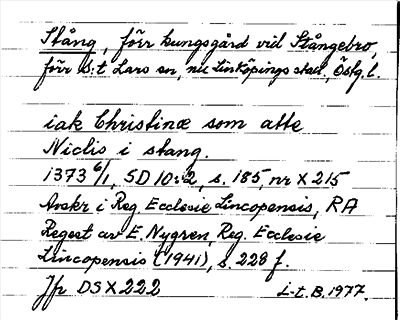 Stång, förr kungsgård vid Stångebro,
förr S:t Lars sn, nu Linköpings stad, Östg.l.
iak Christinæ som atte
Niclis i stang.
1373 6/1, SD 10:2, s. 185, nr X 215
Avskr i Reg. Ecclesie Lincopensis, RA
Regest av E. Nygren, Reg. Ecclesie
Lincopensis (1941), s. 228 f.
Jfr DS X 222
L-t. B. 1977.